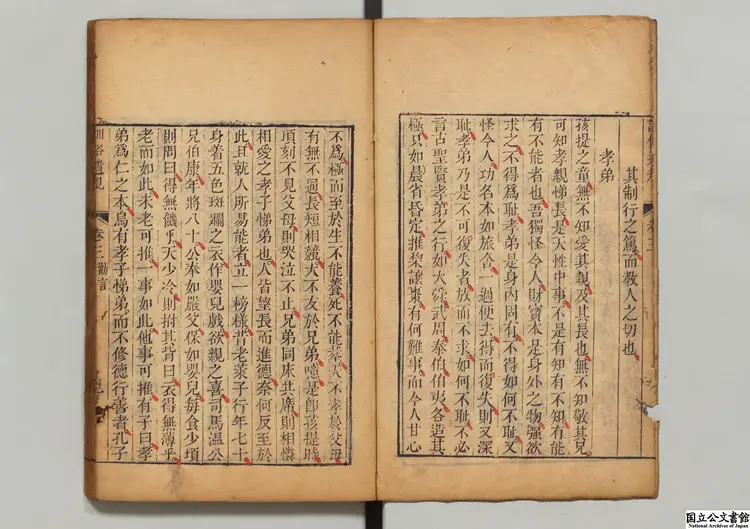 訓俗遺規 卷三
其制行之篤而教人之切也
孝弟
孩提之童無不知愛其親及其長也無不知敬其兄
可知孝親悌長是天性中事不是有知有不知有能
有不能者也吾獨怪今人財寶本是身外之物強欲
求之不得爲耻孝弟是身內固有不得如何不耻又
怪今人功名本如旅舍一過便去得而復失則又深
耻孝弟乃是不可復失者放而不求如何不耻不必
言古聖賢孝弟之行如大舜武周泰伯伯夷各造其
極只如晨省昏定推棃讓棗有何難事而今人甘心
不爲極而至於生不能養死不能葬大不孝於父母
有無不通長短相競大不友於兄弟噫是卽孩提時
頃刻不見父母則哭泣不止兄弟同床共席則相憐
相愛之孝子悌弟也人皆望長而進德奈何反至於
此且就人所易能者立一榜樣昔老萊子行年七十
身着五色斑斕之衣作嬰兒戲欲親之喜司馬溫公
兄伯康年將八十公奉如嚴父保如嬰兒每食少頃
則問曰得無饑乎天少冷則拊其背曰衣得無薄乎
老而如此未老可推一事如此他事可推有子曰孝
弟爲仁之本烏有孝子悌弟而不修德行善者孔子
訓俗遺規 卷三 勸言
国立公文書館
National Archives of Japan